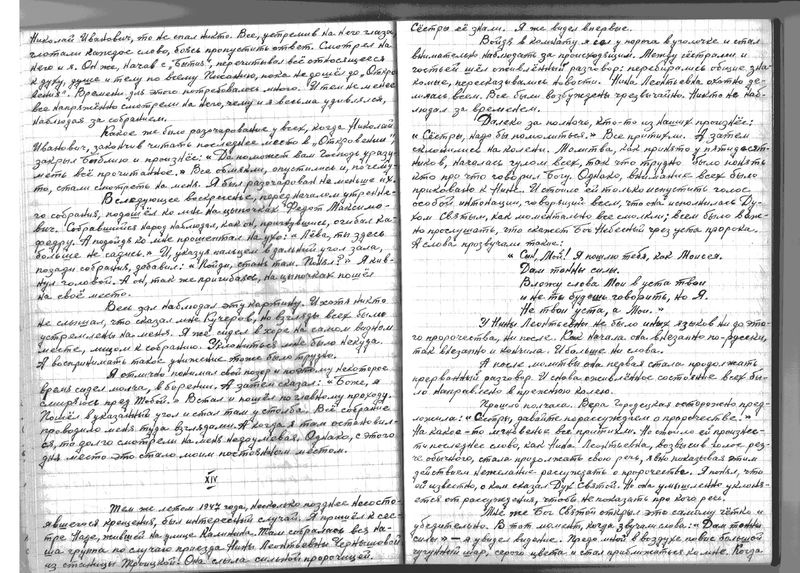 Николай Иванович, то не спал никто. Все, устремив на него глаза,
глотали каждое слово, боясь пропустить ответ. Смотрел на
него и я. Он же, начав с „Бытия", перечитывал всё относящееся
к духу, душе и телу по всему Писанию, пока не дошёл до „Откро
вения". Времени для этого потребовалось много. И тем не менее
все напряжённо смотрели на него, чему и я весьма удивлялся,
наблюдая за собранием.
Каково же было разочарование у всех, когда Николай
Иванович, закончив читать последнее место в „Откровении",
закрыл Библию и произнёс: „Да поможет вам Господь уразу
меть всё прочитанное." Все обмякли, опустились и, почему-
то, стали смотреть на меня. Я был разочарован не меньше их.
В следующее воскресенье, перед началом утренне-
го собрания, подошёл ко мне на цыпочках Федот Максимо-
вич. Собравшийся народ наблюдал, как он, пригнувшись, огибал ка-
федру. А подойдя ко мне прошептал на ухо: „Лёва, ты здесь
больше не садись." И, указуя пальцем в дальний угол зала,
позади собрания, добавил: „Пойди, стань там. Понял?" Я кив-
нул головой. А он, так же пригибаясь, на цыпочках пошёл
на своё место.
Весь зал наблюдал эту картину. И хотя никто
не слышал, что сказал мне Кучеров, но взгляды всех были
устремлены на меня. Я же сидел в хоре на самом видном
месте, лицом к собранию. Уклониться мне было некуда.
А воспринимать такое унижение тоже было трудно.
Я отлично понимал свой позор и поэтому некоторое
время сидел молча, в борении. А затем сказал: „Боже, я
смирюсь пред Тобой." Встал и пошёл по главному проходу.
Пошёл в указанный угол и стал там у столба. Всё собрание
проводило меня туда взглядами. А когда я там остановил-
ся, то долго смотрели на меня недоумевая. Однако, с этого
дня место это стало моим постоянным местом.
XIV
Тем же летом 1947 года, несколько позднее несосто-
явшегося крещения, был интересный случай. Я пришёл к сес-
тре Наде, жившей на улице Калинина. Там собралась вся на-
ша группа по случаю приезда Нины Леонтьевны Чернышовой
из станицы Троицкой. Она слыла сильной пророчицей.
Сёстры её знали. Я же видел впервые.
Войдя в комнату я сел у порога в уголочке и стал
внимательно наблюдать за происходящим. Между сёстрами и
гостьей шёл оживлённый разговор: перебирались общие зна-
комые, пересказывались новости. Нина Леонтьевна охотно де-
лилась всем. Все были возбуждены чрезвычайно. Никто не наб-
людал за временем.
Далеко за полночь, кто-то из наших произнёс:
„Сёстры, надо бы помолиться." Все притихли. А затем
склонились на колени. Молитва, как принято у пятидесят-
ников, началась гулом всех, так что трудно было понять
кто про что говорил Богу. Однако, внимание всех было
приковано к Нине. И стоило ей только испустить голос
особой интонации, говорящий всем, что она исполнилась Ду-
хом Святым, как моментально все смолкли; всем было важ-
но прослушать, что скажет Бог Небесный чрез уста пророка.
А слова прозвучали такие:
„ Сын, Мой! Я пошлю тебя, как Моисея.
Дам тонны силы.
Вложу слова Мои в уста твои
и не ты будешь говорить, но Я.
Не твои уста, а Мои. "
У Нины Леонтьевны не было иных языков ни до это-
го пророчества, ни после. Как начала она внезапно по-русски,
так внезапно и кончила. И больше ни слова.
А после молитвы она первая стала продолжать
прерванный разговор. И снова оживлённое состояние всех бы-
ло направлено в прежнюю колею.
Прошло полчаса. Вера Городецкая осторожно пред-
ложила: „Сёстры, давайте порассуждаем о пророчестве."
На какое-то мгновенье все притихли. Но стоило ей произнес-
ти последнее слово, как Нина Леонтьевна, возвысив голос рез-
че обычного, стала продолжать свою речь, явно показывая этим
действием нежелание рассуждать о пророчестве. Я понял, что
ей известно, о ком сказал Дух Святой. Но она умышленно уклоня-
ется от рассуждения, чтобы не показать про кого речь.
Мне же Бог Святой открыл это самому чётко и
убедительно. В тот момент, когда звучали слова: „Дам тонны
силы" — я увидел видение. Предо мной в воздухе повис большой
чугунный шар, серого цвета и стал приближаться ко мне. Когда